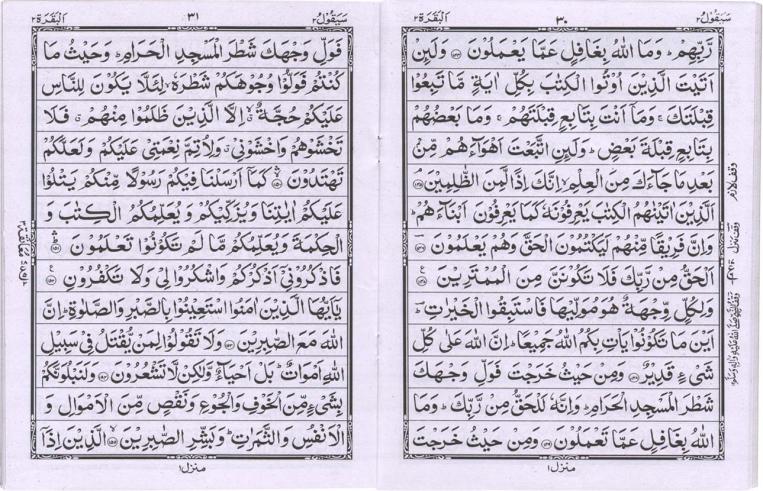 سَيَقُوْلُ ٢ ٣٠ اَلْبَقَرَة ٢
رَّبِّهِمْ ؕ وَمَا اللّٰهُ بِغَافِلٍ عَمَّا يَعْمَلُوْنَ ﴿۱۴۴﴾ وَلَئِنْ
اَتَيْتَ الَّذِيْنَ اُوْتُوا الْكِتٰبَ بِكُلِّ اٰيَةٍ مَّا تَبِعُوْا
قِبْلَتَكَ ۚ وَمَاۤ اَنْتَ بِتَابِعٍ قِبْلَتَهُمْ ۚ وَمَا بَعْضُهُمْ
بِتَابِعٍ قِبْلَةَ بَعْضٍ ؕ وَلَئِنِ اتَّبَعْتَ اَهْوَآءَهُمْ مِّنْۢ
بَعْدِ مَا جَآءَكَ مِنَ الْعِلْمِ ۙ اِنَّكَ اِذًا لَّمِنَ الظّٰلِمِيْنَ ﴿۱۴۵﴾
اَلَّذِيْنَ اٰتَيْنٰهُمُ الْكِتٰبَ يَعْرِفُوْنَهٗ كَمَا يَعْرِفُوْنَ اَبْنَآءَهُمْ ؕ
وَاِنَّ فَرِيْقًا مِّنْهُمْ لَيَكْتُمُوْنَ الْحَقَّ وَهُمْ يَعْلَمُوْنَ ﴿۱۴۶﴾
اَلْحَقُّ مِنْ رَّبِّكَ فَلَا تَكُوْنَنَّ مِنَ الْمُمْتَرِيْنَ ﴿۱۴۷﴾
وَلِكُلٍّ وِّجْهَةٌ هُوَ مُوَلِّيْهَا فَاسْتَبِقُوا الْخَيْرٰتِ ؕ
اَيْنَ مَا تَكُوْنُوْا يَاْتِ بِكُمُ اللّٰهُ جَمِيْعًا ؕ اِنَّ اللّٰهَ عَلٰى كُلِّ
شَىْءٍ قَدِيْرٌ ﴿۱۴۸﴾ وَمِنْ حَيْثُ خَرَجْتَ فَوَلِّ وَجْهَكَ
شَطْرَ الْمَسْجِدِ الْحَرَامِ ؕ وَاِنَّهٗ لَلْحَقُّ مِنْ رَّبِّكَ ؕ وَمَا
اللّٰهُ بِغَافِلٍ عَمَّا تَعْمَلُوْنَ ﴿۱۴۹﴾ وَمِنْ حَيْثُ خَرَجْتَ
منزل ١
سَيَقُوْلُ ٢ ٣١ اَلْبَقَرَة ٢
فَوَلِّ وَجْهَكَ شَطْرَ الْمَسْجِدِ الْحَرَامِ ؕ وَحَيْثُ مَا
كُنْتُمْ فَوَلُّوْا وُجُوْهَكُمْ شَطْرَهٗ ۙ لِئَلَّا يَكُوْنَ لِلنَّاسِ
عَلَيْكُمْ حُجَّةٌ ۙ اِلَّا الَّذِيْنَ ظَلَمُوْا مِنْهُمْ ۗ فَلَا
تَخْشَوْهُمْ وَاخْشَوْنِىْ ۗ وَلِاُتِمَّ نِعْمَتِىْ عَلَيْكُمْ وَلَعَلَّكُمْ
تَهْتَدُوْنَ ﴿۱۵۰﴾ كَمَاۤ اَرْسَلْنَا فِيْكُمْ رَسُوْلًا مِّنْكُمْ يَتْلُوْا
عَلَيْكُمْ اٰيٰتِنَا وَيُزَكِّيْكُمْ وَيُعَلِّمُكُمُ الْكِتٰبَ وَ
الْحِكْمَةَ وَيُعَلِّمُكُمْ مَّا لَمْ تَكُوْنُوْا تَعْلَمُوْنَ ﴿۱۵۱﴾
فَاذْكُرُوْنِىْۤ اَذْكُرْكُمْ وَاشْكُرُوْا لِىْ وَلَا تَكْفُرُوْنِ ﴿۱۵۲﴾
يٰۤاَيُّهَا الَّذِيْنَ اٰمَنُوا اسْتَعِيْنُوْا بِالصَّبْرِ وَالصَّلٰوةِ ؕ اِنَّ
اللّٰهَ مَعَ الصّٰبِرِيْنَ ﴿۱۵۳﴾ وَلَا تَقُوْلُوْا لِمَنْ يُّقْتَلُ فِىْ سَبِيْلِ
اللّٰهِ اَمْوَاتٌ ؕ بَلْ اَحْيَآءٌ وَّلٰكِنْ لَّا تَشْعُرُوْنَ ﴿۱۵۴﴾ وَلَنَبْلُوَنَّكُمْ
بِشَىْءٍ مِّنَ الْخَوْفِ وَالْجُوْعِ وَنَقْصٍ مِّنَ الْاَمْوَالِ وَ
الْاَنْفُسِ وَالثَّمَرٰتِ ؕ وَبَشِّرِ الصّٰبِرِيْنَ ﴿۱۵۵﴾ الَّذِيْنَ اِذَاۤ
منزل ١